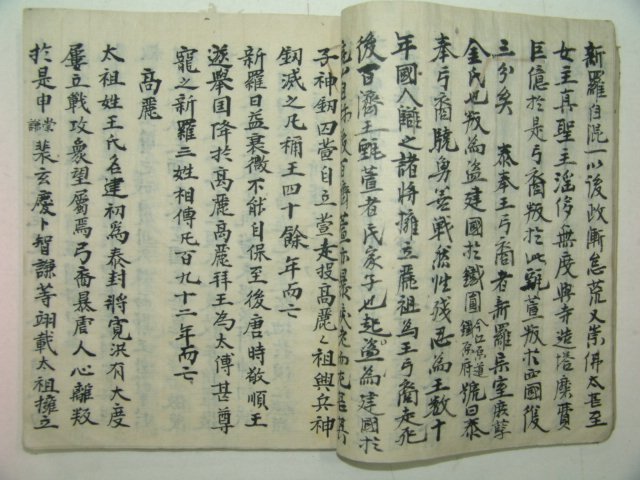 新羅自混一以後政漸怠荒又崇佛太甚至
女主真聖王淫侈無度興寺造塔糜費
巨億於是弓裔叛於北甄萱叛於西國復
三分矣 泰奉王弓裔者新羅宗室庶孽
金氏也叛為盗建國於鐵圓今江京道鐵原府號曰泰
奉弓裔驍勇善戰然性残忍為王数十
年國人離之諸將擁立麗祖為王弓裔走死
後百濟王甄萱者民家子也起盗為建國於
子神釰囚萱自立萱走投高麗〻祖興兵神
釰滅之凡稱王四十餘年而亡
新羅日益衰微不能自保至後唐時敬順王
遂舉国降於高麗高麗拜王為太傅甚尊
寵之新羅三姓相傳凡百九十二年而亡
高麗
太祖姓王氏名建初為泰封將寛洪有大度
屢立戰攻衆望屬焉弓裔暴虐人心離叛
於是申崇謙裴玄慶卜智謙等翊戴太祖擁立